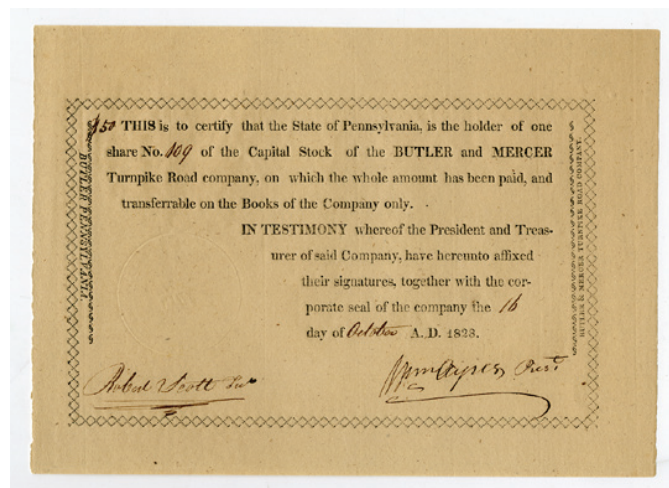 $50 THIS is to certify that the State of Pennsylvania, is the holder of one
share No. 109 of the Capital Stock of the BUTLER and MERCER
Turnpike Road company, on which the whole amount has been paid, and
transferrable on the Books of the Company only.
IN TESTIMONY whereof the President and Treas-
urer of said Company, have hereunto affixed
their signatures, together with the cor-
porate seal of the company the 16
day of October A.D. 1823.
Robert Scott
Prest
BUTLER PENNSYLVANIA.
BUTLER & MERCER TURNPIKE ROAD COMPANY.